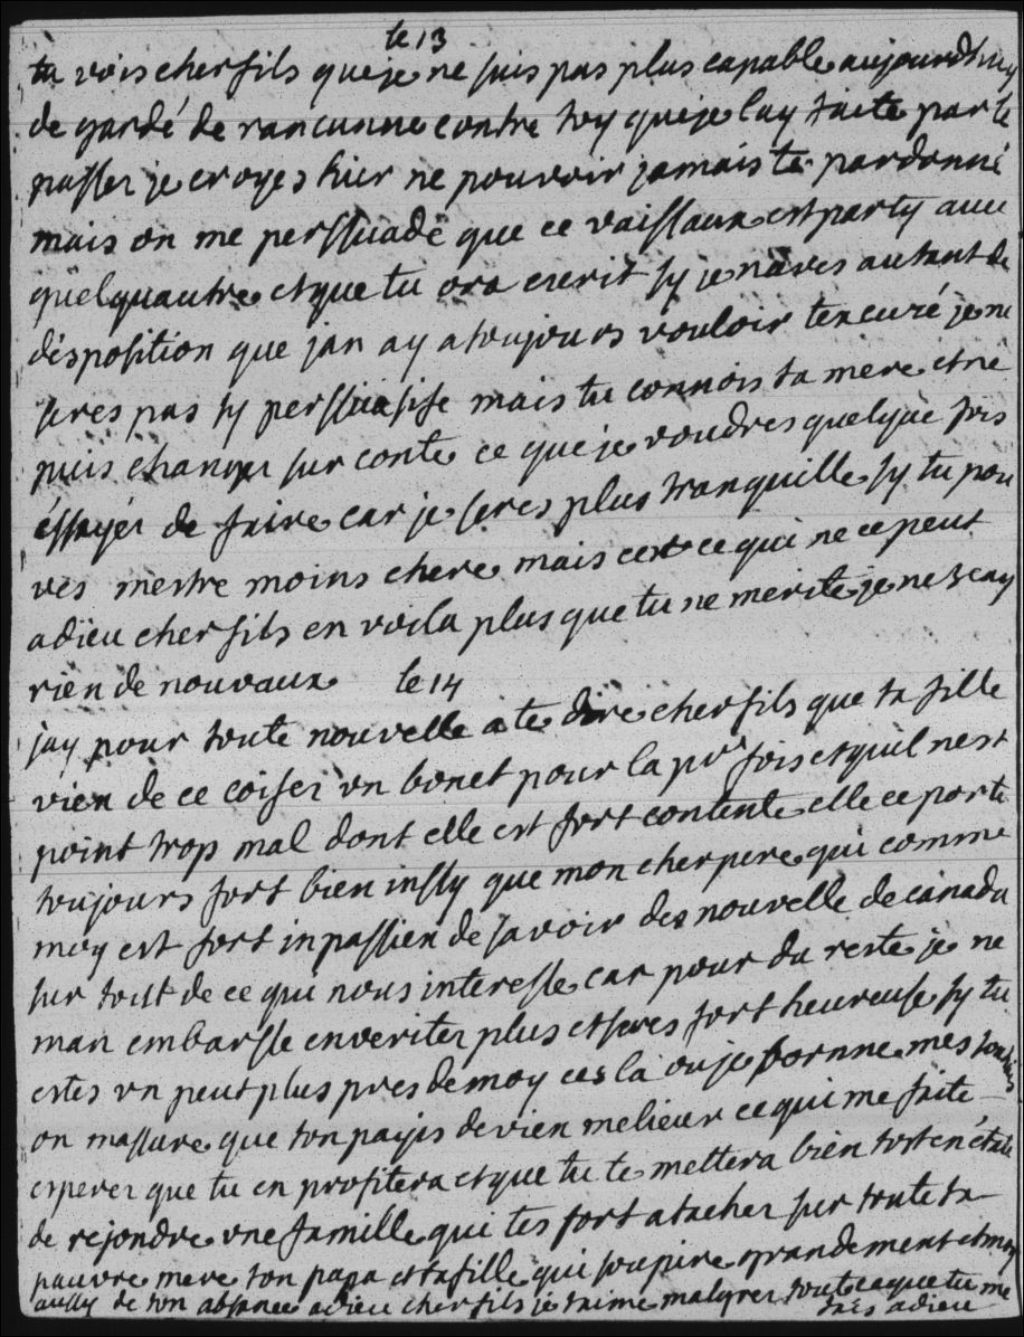 le 13
tu vois cher fils que je ne suis pas plus capable aujourdhuy
de gardé de rancunne contre toy que je lay faite par le
passer je croyes hier ne pouvoir jamais te pardonné
mais on me perssuadé que ce vaissaux est party avec
quelquautre et que tu ora escrit sy je naves autant de
disposition que jan ay a toujours vouloir texcuzé je ne
seres pas sy perssuasife mais tu connois ta mere et ne
puis changer sur conte ce que je voudres quelque fois
éssayer de faire car je seres plus tranquille sy tu pou
ves mestre moins chere mais cest ce qui ne ce peut
adieu cher fils en voila plus que tu ne merite je ne scay
rien de nouvaux le 14
jay pour toute nouvelle a te dire cher fils que ta fille
vien de ce coifer un bonet pour la pre fois et quil nest
point trop mal dont elle est fort contente elle ce porte
toujours fort bien insy que mon cher pere qui comme
moy est fort inpassien de savoir des nouvelle de canada
sur tout de ce qui nous interesse car pour du reste je ne
man embarsse en veriter plus et seres fort heureuse sy tu
estes un peut plus pres de moy ces la ou je bornne mes
on massure que ton payis devien melieur ce qui me faite
esperer que tu en profitera et que tu te mettera bien tost en état
de rejondre une famille qui tes fort atacher sur toute ta
pauvre mere ton papa et ta fille qui soupire grandement et moy
aussy de ton absance adieu cher fils je taime malgrer tout ce que tu me
fais adieu